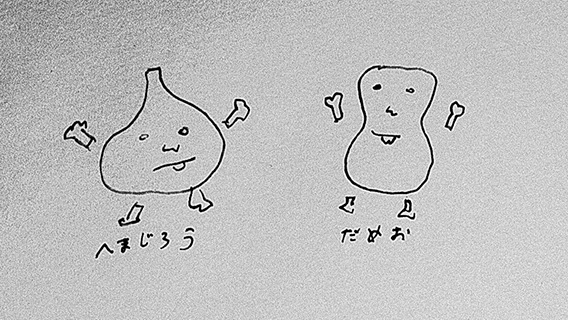 へまじろう
だめお